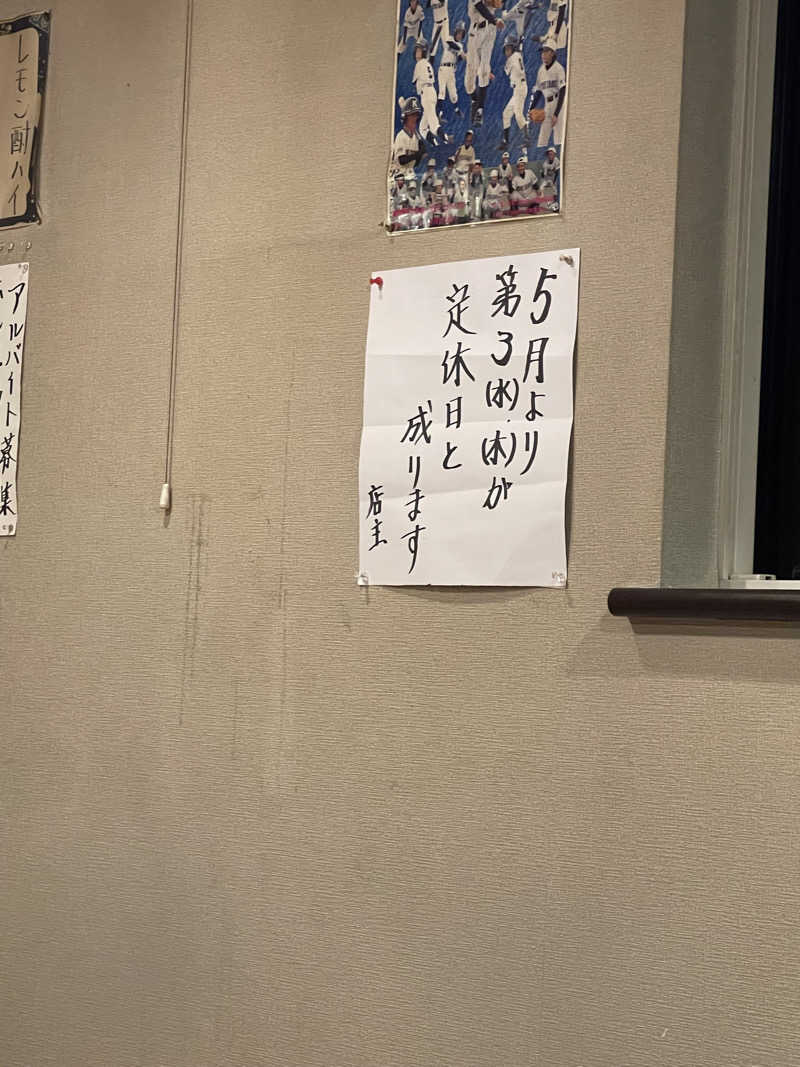 5月より
第3(水)・(木)が
定休日と
成ります
店主
レモン酎ハイ
アルバイト募集